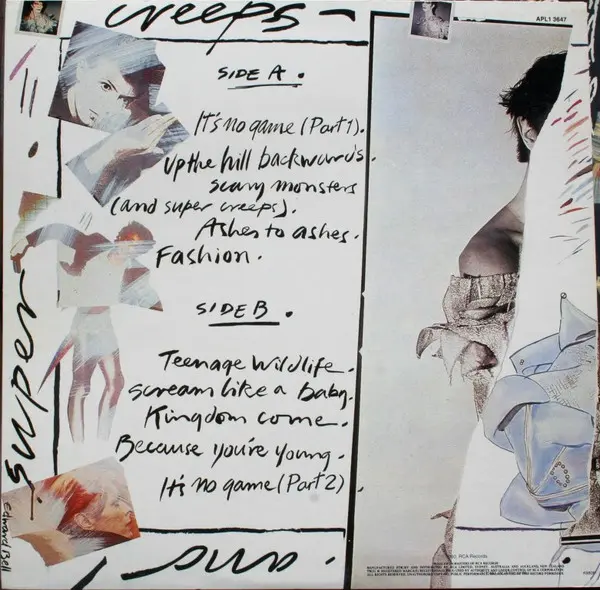 creeps -
APL1 3647
SIDE A .
It's no game (Part 1).
up the hill backwards.
scary monsters
(and super creeps).
Ashes to ashes.
Fashion.
SIDE B .
Teenage wildlife.
scream like a baby.
Kingdom come.
Because you're young.
It's no game (Part 2)
super
and
Edward Bell
RCA Records